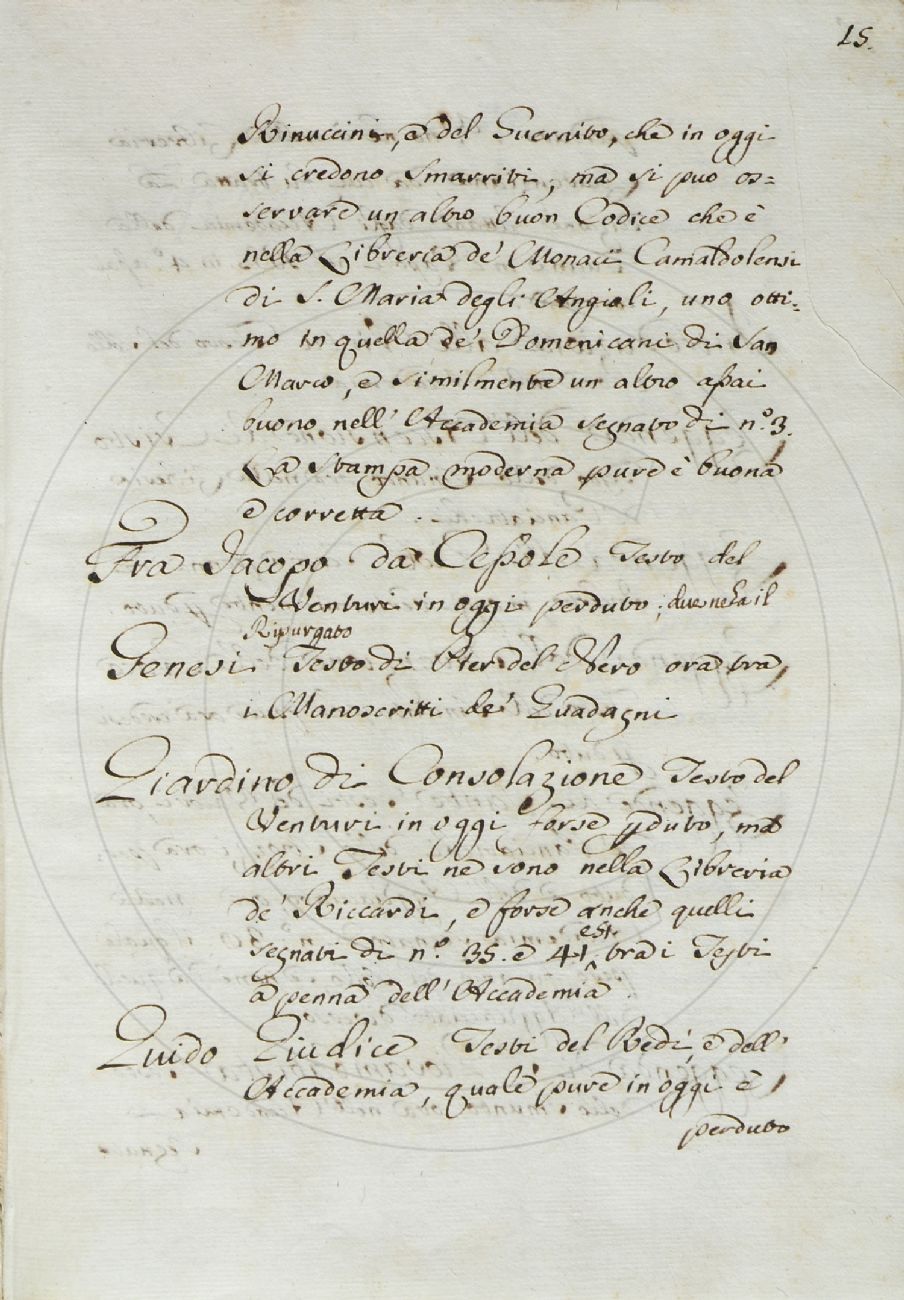 15.
Rinuccini, e del Guernito, che in oggi
si credono smarriti, ma si puo os=
servare un altro buon Codice che è
nella Libreria de' Monaci Camaldolensi
di S. Maria degli Angioli, uno otti=
mo in quella de' Domenicani di San
Marco, e similmente un altro assai
buono nell' Accademia segnato di n.º 3.
La stampa moderna pure è buona
e corretta.
Fra Jacopo da Cessole Testo del
Venturi in oggi perduto; due ne ha il
Ripurgato
Genesi Testo di Pier del Nero ora tra
i Manoscritti de' Guadagni
Giardino di Consolazione Testo del
Venturi in oggi forse pduto, ma
altri Testi ne sono nella Libreria
de' Riccardi, e forse anche quelli
segnati di n.º 35. e 41 est. tra i Testi
a penna dell' Accademia.
Guido Giudice Testi del Redi, e dell'
Accademia, quale pure in oggi è
perduto